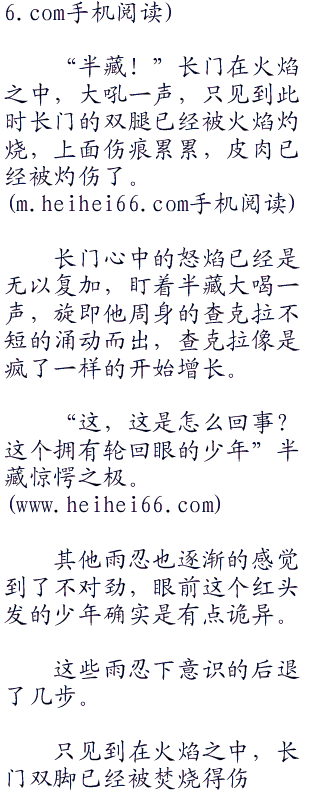 6.com手机阅读)
“半藏！”长门在火焰
之中，大吼一声，只见到此
时长门的双腿已经被火焰灼
烧，上面伤痕累累，皮肉已
经被灼伤了。
(m.heihei66.com手机阅读)
长门心中的怒焰已经是
无以复加，盯着半藏大喝一
声，旋即他周身的查克拉不
短的涌动而出，查克拉像是
疯了一样的开始增长。
“这，这是怎么回事？
这个拥有轮回眼的少年”半
藏惊愕之极。
(www.heihei66.com)
其他雨忍也逐渐的感觉
到了不对劲，眼前这个红头
发的少年确实是有点诡异。
这些雨忍下意识的后退
了几步。
只见到在火焰之中，长
门双脚已经被焚烧得伤